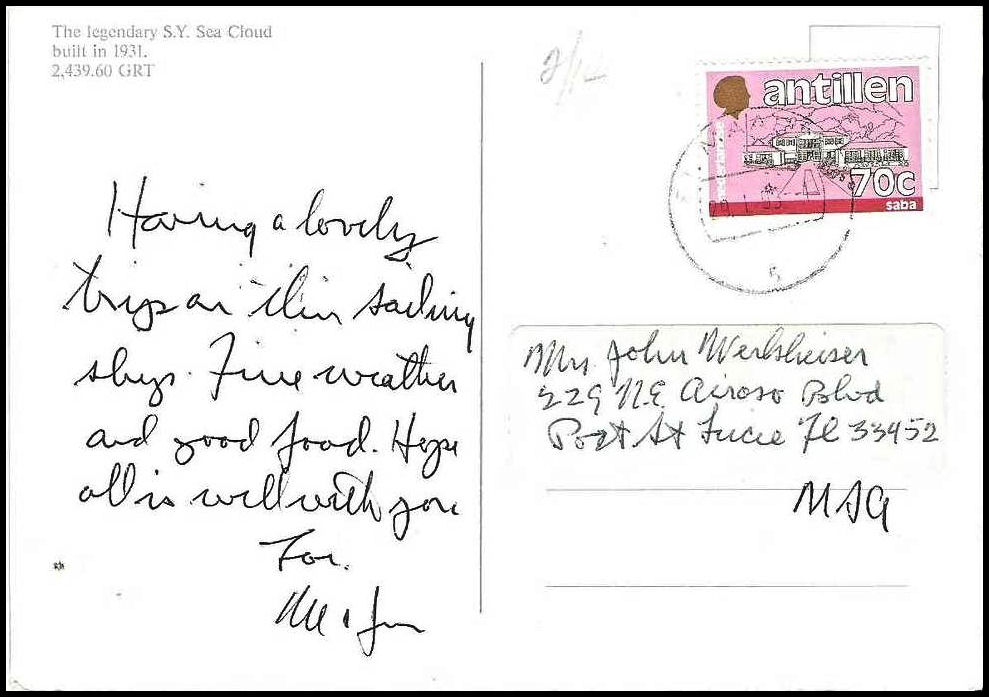 The legendary S.Y. Sea Cloud
built in 1931.
2,439.60 GRT
antillen
70c
saba
5
Having a lovely
trip on this sailing
ship. Fine weather
and good food. Hope
all is well with you
Mrs. John
229 N.E. Airoso Blvd
Port St Lucie Fl 33452